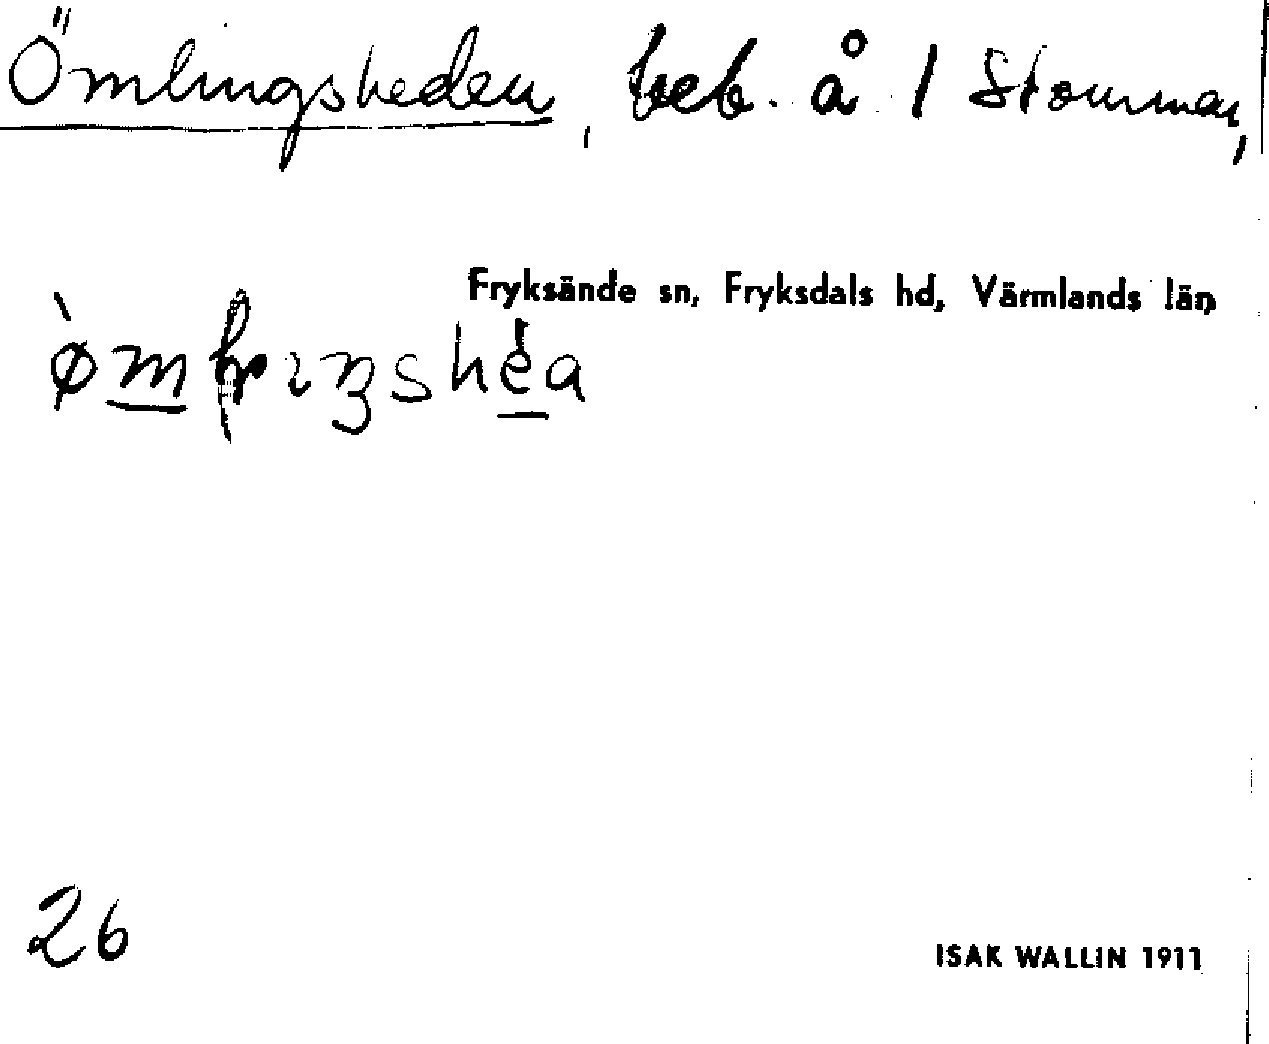 Ömlingsheden, beb. å 1 Stommen,
Fryksände sn, Fryksdals hd, Värmlands län
26
ISAK WALLIN 1911